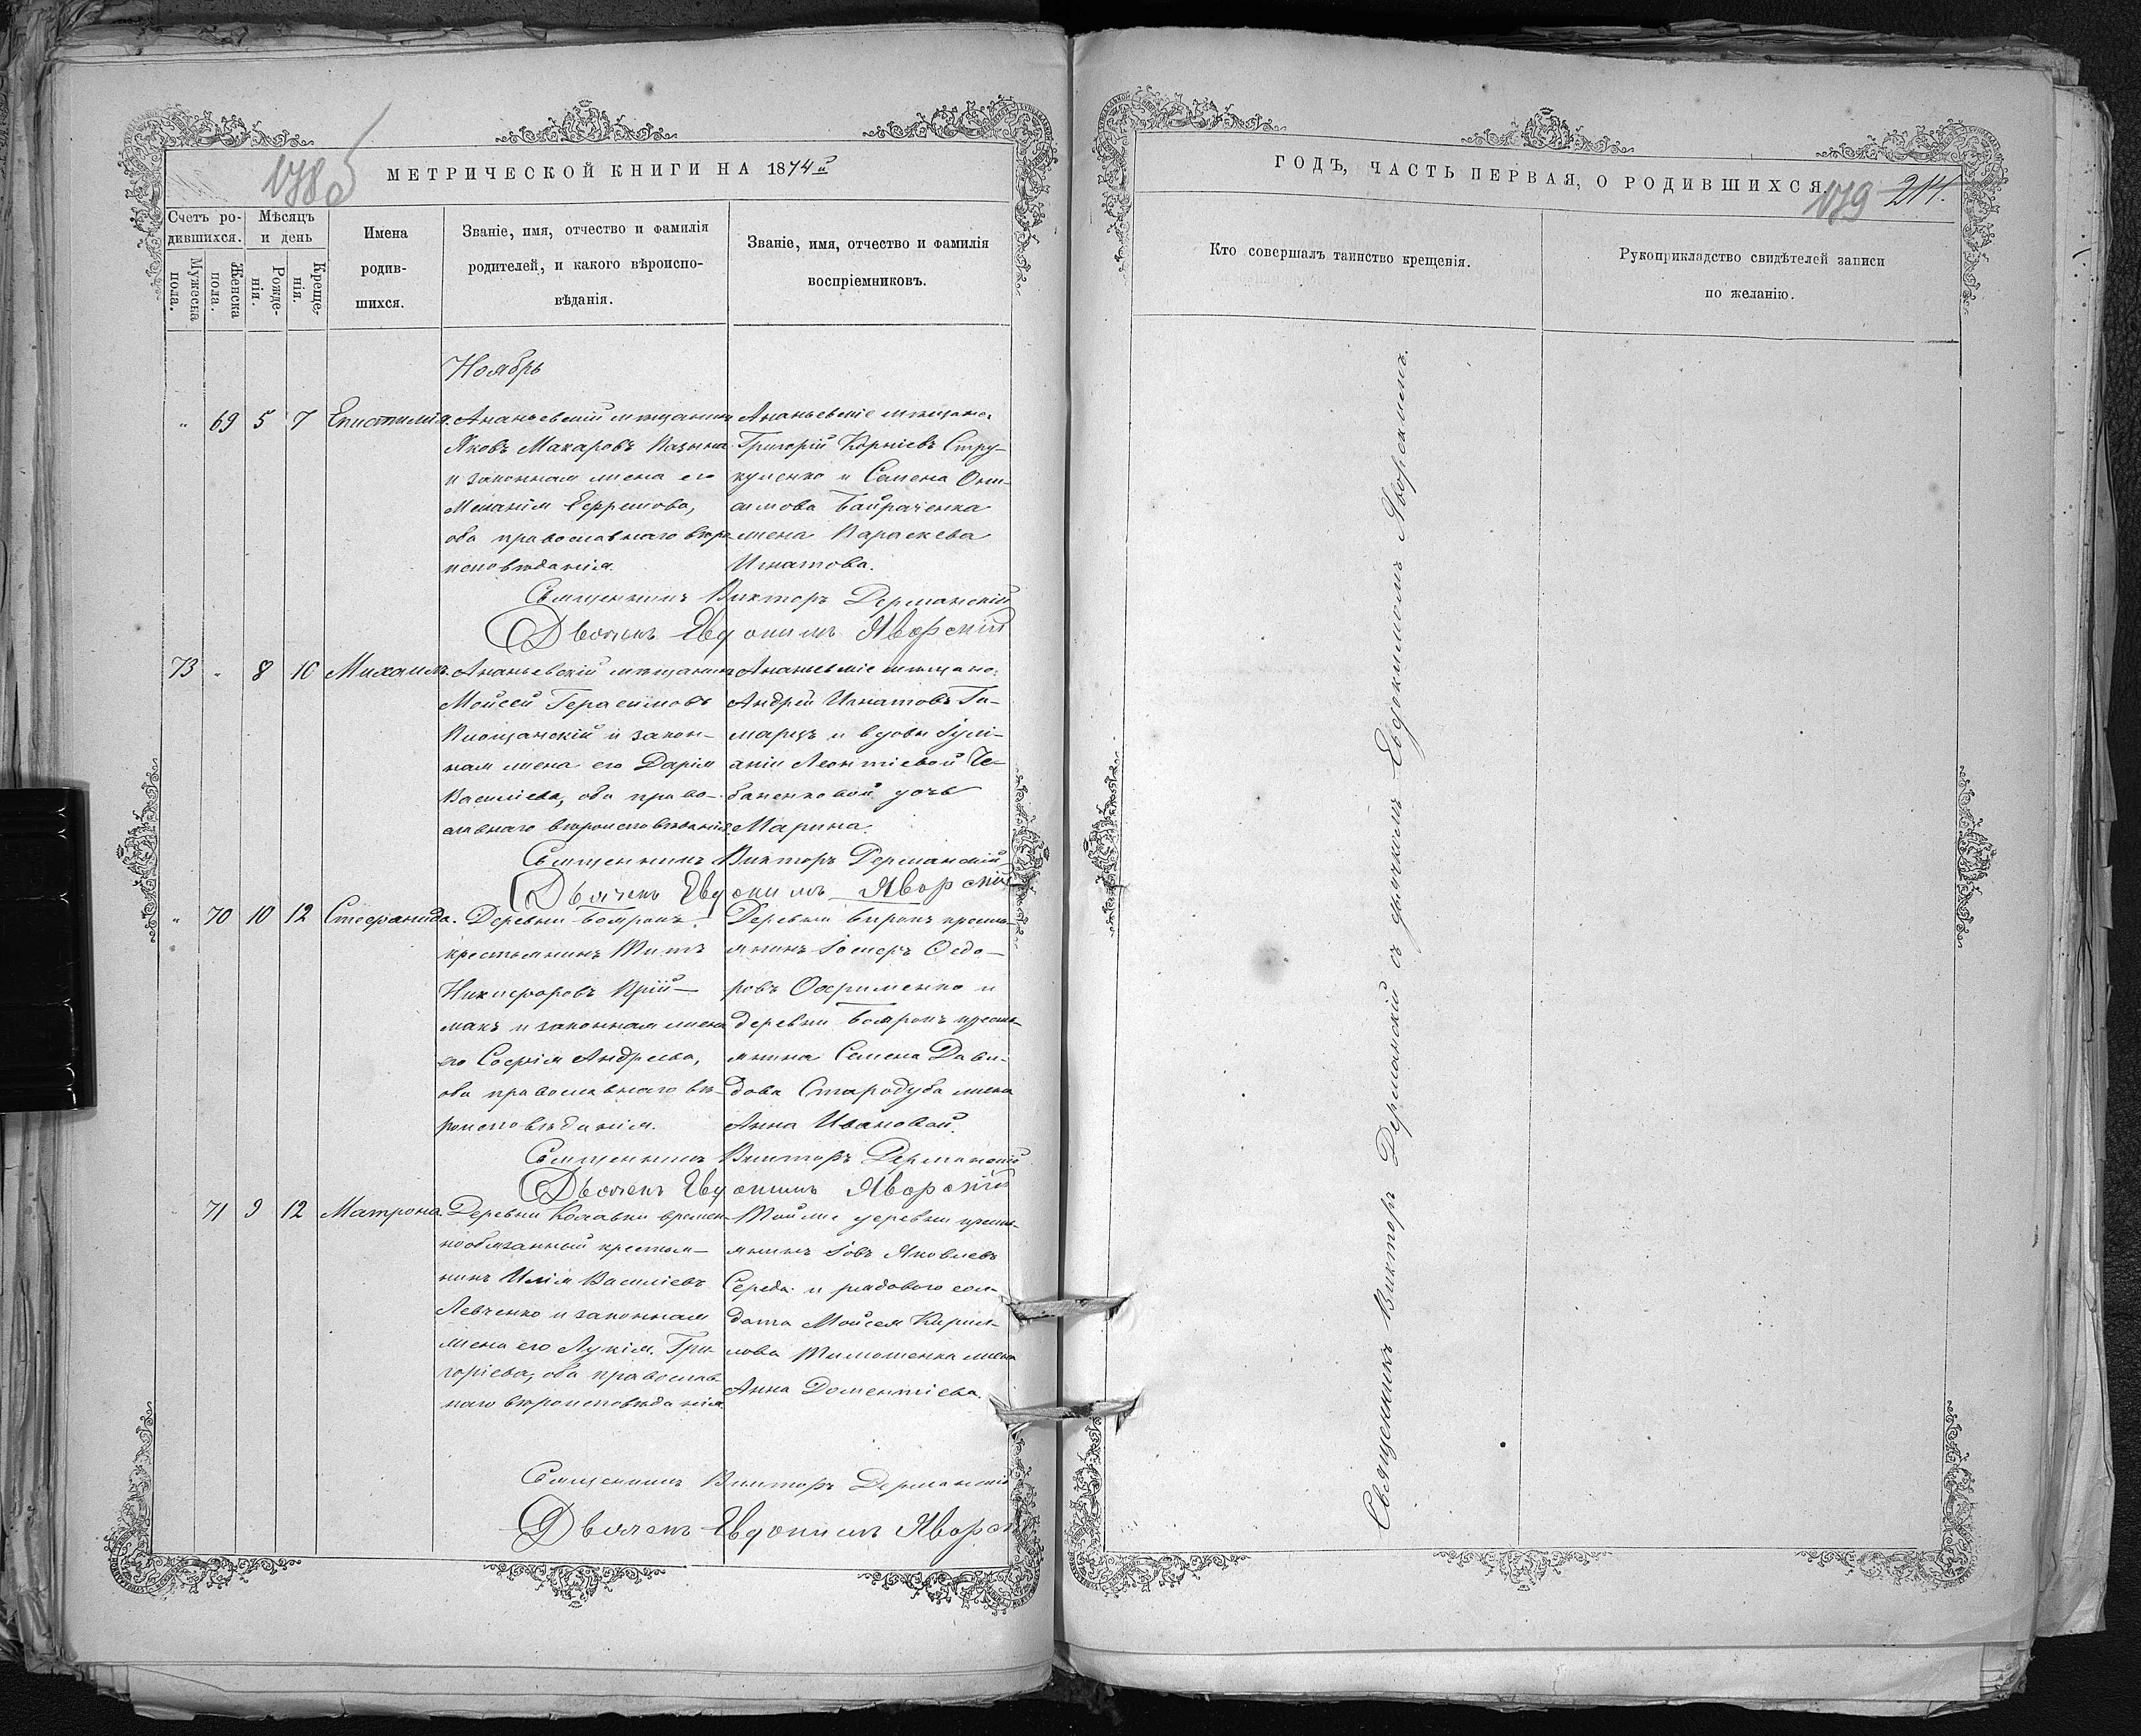 178 об
МЕТРИЧЕСКОЙ КНИГИ НА 1874й
Счетъ ро-
дившихся.
Мѣсяцъ
и день
Мужеска
пола.
Женска
пола.
Рожде-
нія.
Креще-
нія.
Имена
родив-
шихся.
Званіе, имя, отчество и фамилія
родителей, и какого вѣроиспо-
вѣданія.
Званіе, имя, отчество и фамилія
воспріемниковъ.
Ноябрь
" 69 5 7 Епистимія.
Ананьевскій мѣщанинъ
Яковъ Макаровъ
и законная жена его
Меланія Ефремова,
оба православнаго вѣро-
исповѣданія.
Ананьевскіе мѣщане:
Григорій Корніевъ Стру-
куленко и Семена Они-
симова Байраченка
жена Параскева
Игнатова.
Священникъ Викторъ Дерманскій
Дьячекъ Евдокимъ Яворскій
73 " 8 10 Михаилъ.
Ананьевскій мѣщанинъ
Мойсей Герасимовъ
и закон-
ная жена его Дарія
Василіева, оба право-
славнаго вѣроисповѣданія.
Ананьевскіе мѣщане:
Андрей Игнатовъ Га-
марцъ и вдовы Іулі-
аніи Леонтіевой Че-
баненковой дочь
Марина.
Священникъ Викторъ Дерманскій
Дьячекъ Евдокимъ Яворскій
" 70 10 12 Стефанида.
Деревни Бояронъ
крестьянинъ Титъ
Никифоровъ Прій-
макъ и законная жена
его Софія Андреева,
оба православнаго вѣ-
роисповѣданія.
Деревни кресть-
янинъ Іосифъ Ѳедо-
ровъ Охрименко и
деревни Бояронъ кресть-
янина Семена Дави-
дова Стародуба жена
Анна Ивановой.
Священникъ Викторъ Дерманскій
Дьячекъ Евдокимъ Яворскій
" 71 9 12 Матрона.
Деревни времен-
нообязанный крестья-
нинъ Илія Василіевъ
Левченко и законная
жена его Лукія Гри-
горіева, оба православ-
наго вѣроисповѣданія.
Тойже деревни кресть-
янинъ Іовъ Яковлевъ
Середа и рядового сол-
дата Мойсея Кирил-
лова Тимошенка жена
Анна Доментіева.
Священникъ Викторъ Дерманскій
Дьячекъ Евдокимъ Яворскій
ГОДЪ, ЧАСТЬ ПЕРВАЯ, О РОДИВШИХСЯ.
179 211.
Кто совершалъ таинство крещенія.
Рукоприкладство свидѣтелей записи
по желанію.
Священникъ Викторъ Дерманскій съ дьячкомъ Евдокимомъ Яворскимъ.